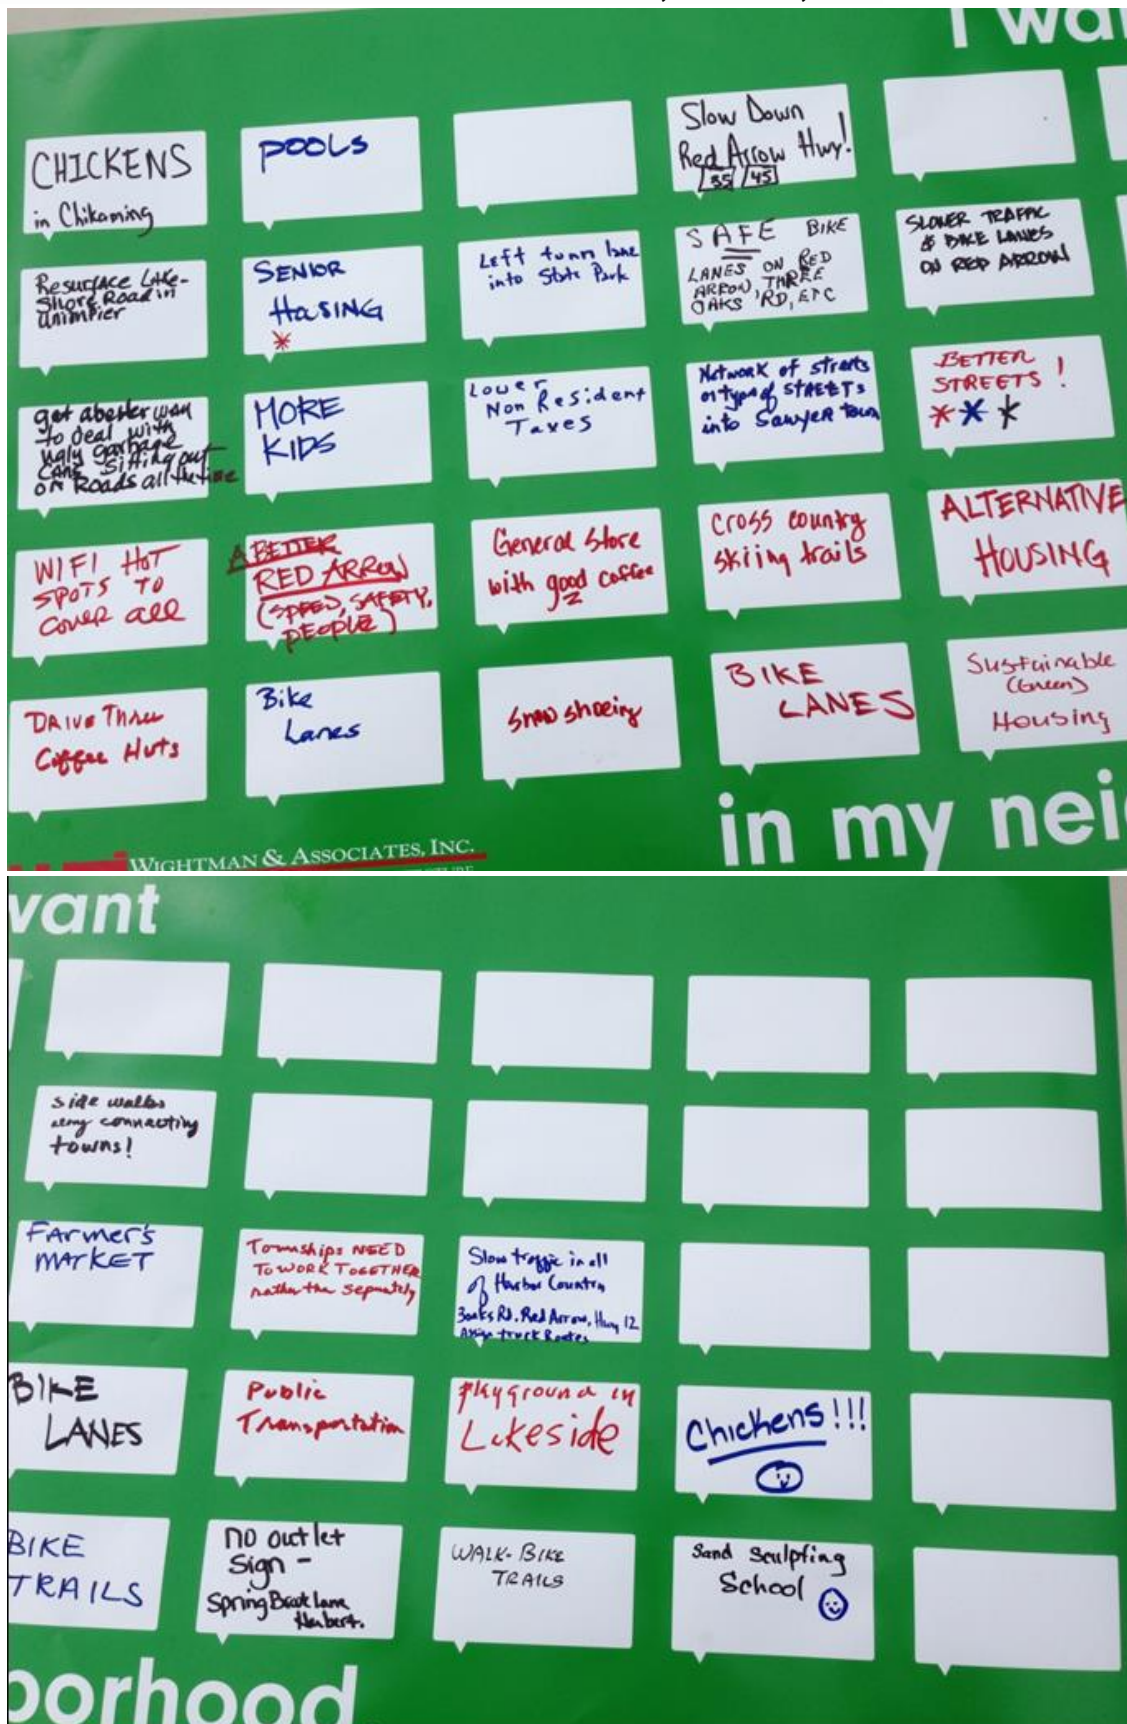 I wa
CHICKENS
in Chikaming
POOLS
Slow Down
Red Arrow Hwy!
35 45
Resurface Lake-
Shore Road in
unimpier
SENIOR
HOUSING
*
Left turn lane
into State Park
SAFE BIKE
LANES ON RED
ARROW, THREE
OAKS RD, ETC
SLOWER TRAFFIC
& BIKE LANES
ON RED ARROW
get a better way
to deal with
ugly garbage
cans sitting out
on Roads all the time
MORE
KIDS
Lower
Non Resident
Taxes
Network of streets
or types of STREETS
into Sawyer town
BETTER
STREETS !
* * *
WIFI HOT
SPOTS TO
COVER ALL
A BETTER
RED ARROW
(SPEED, SAFETY,
PEOPLE)
General Store
with good coffee
Cross country
skiing trails
ALTERNATIVE
HOUSING
DRIVE Thru
Coffee Huts
Bike
Lanes
Snow shoeing
BIKE
LANES
Sustainable
(Green)
Housing
in my nei
WIGHTMAN & ASSOCIATES, INC.
want
side walks
along connecting
towns!
FArmer's
MArKET
Townships NEED
TO WORK TOGETHER
rather than seperately
Slow traffic in all
of Harbor Country
3 oaks Rd. Red Arrow, Hwy 12
Assign truck Routes
BIKE
LANES
Public
Transportation
playground in
Lakeside
Chickens!!!
BIKE
TRAILS
NO outlet
Sign -
Spring Beach Lane
Herbert.
WALK-BIKE
TRAILS
Sand Sculpting
School
borhood